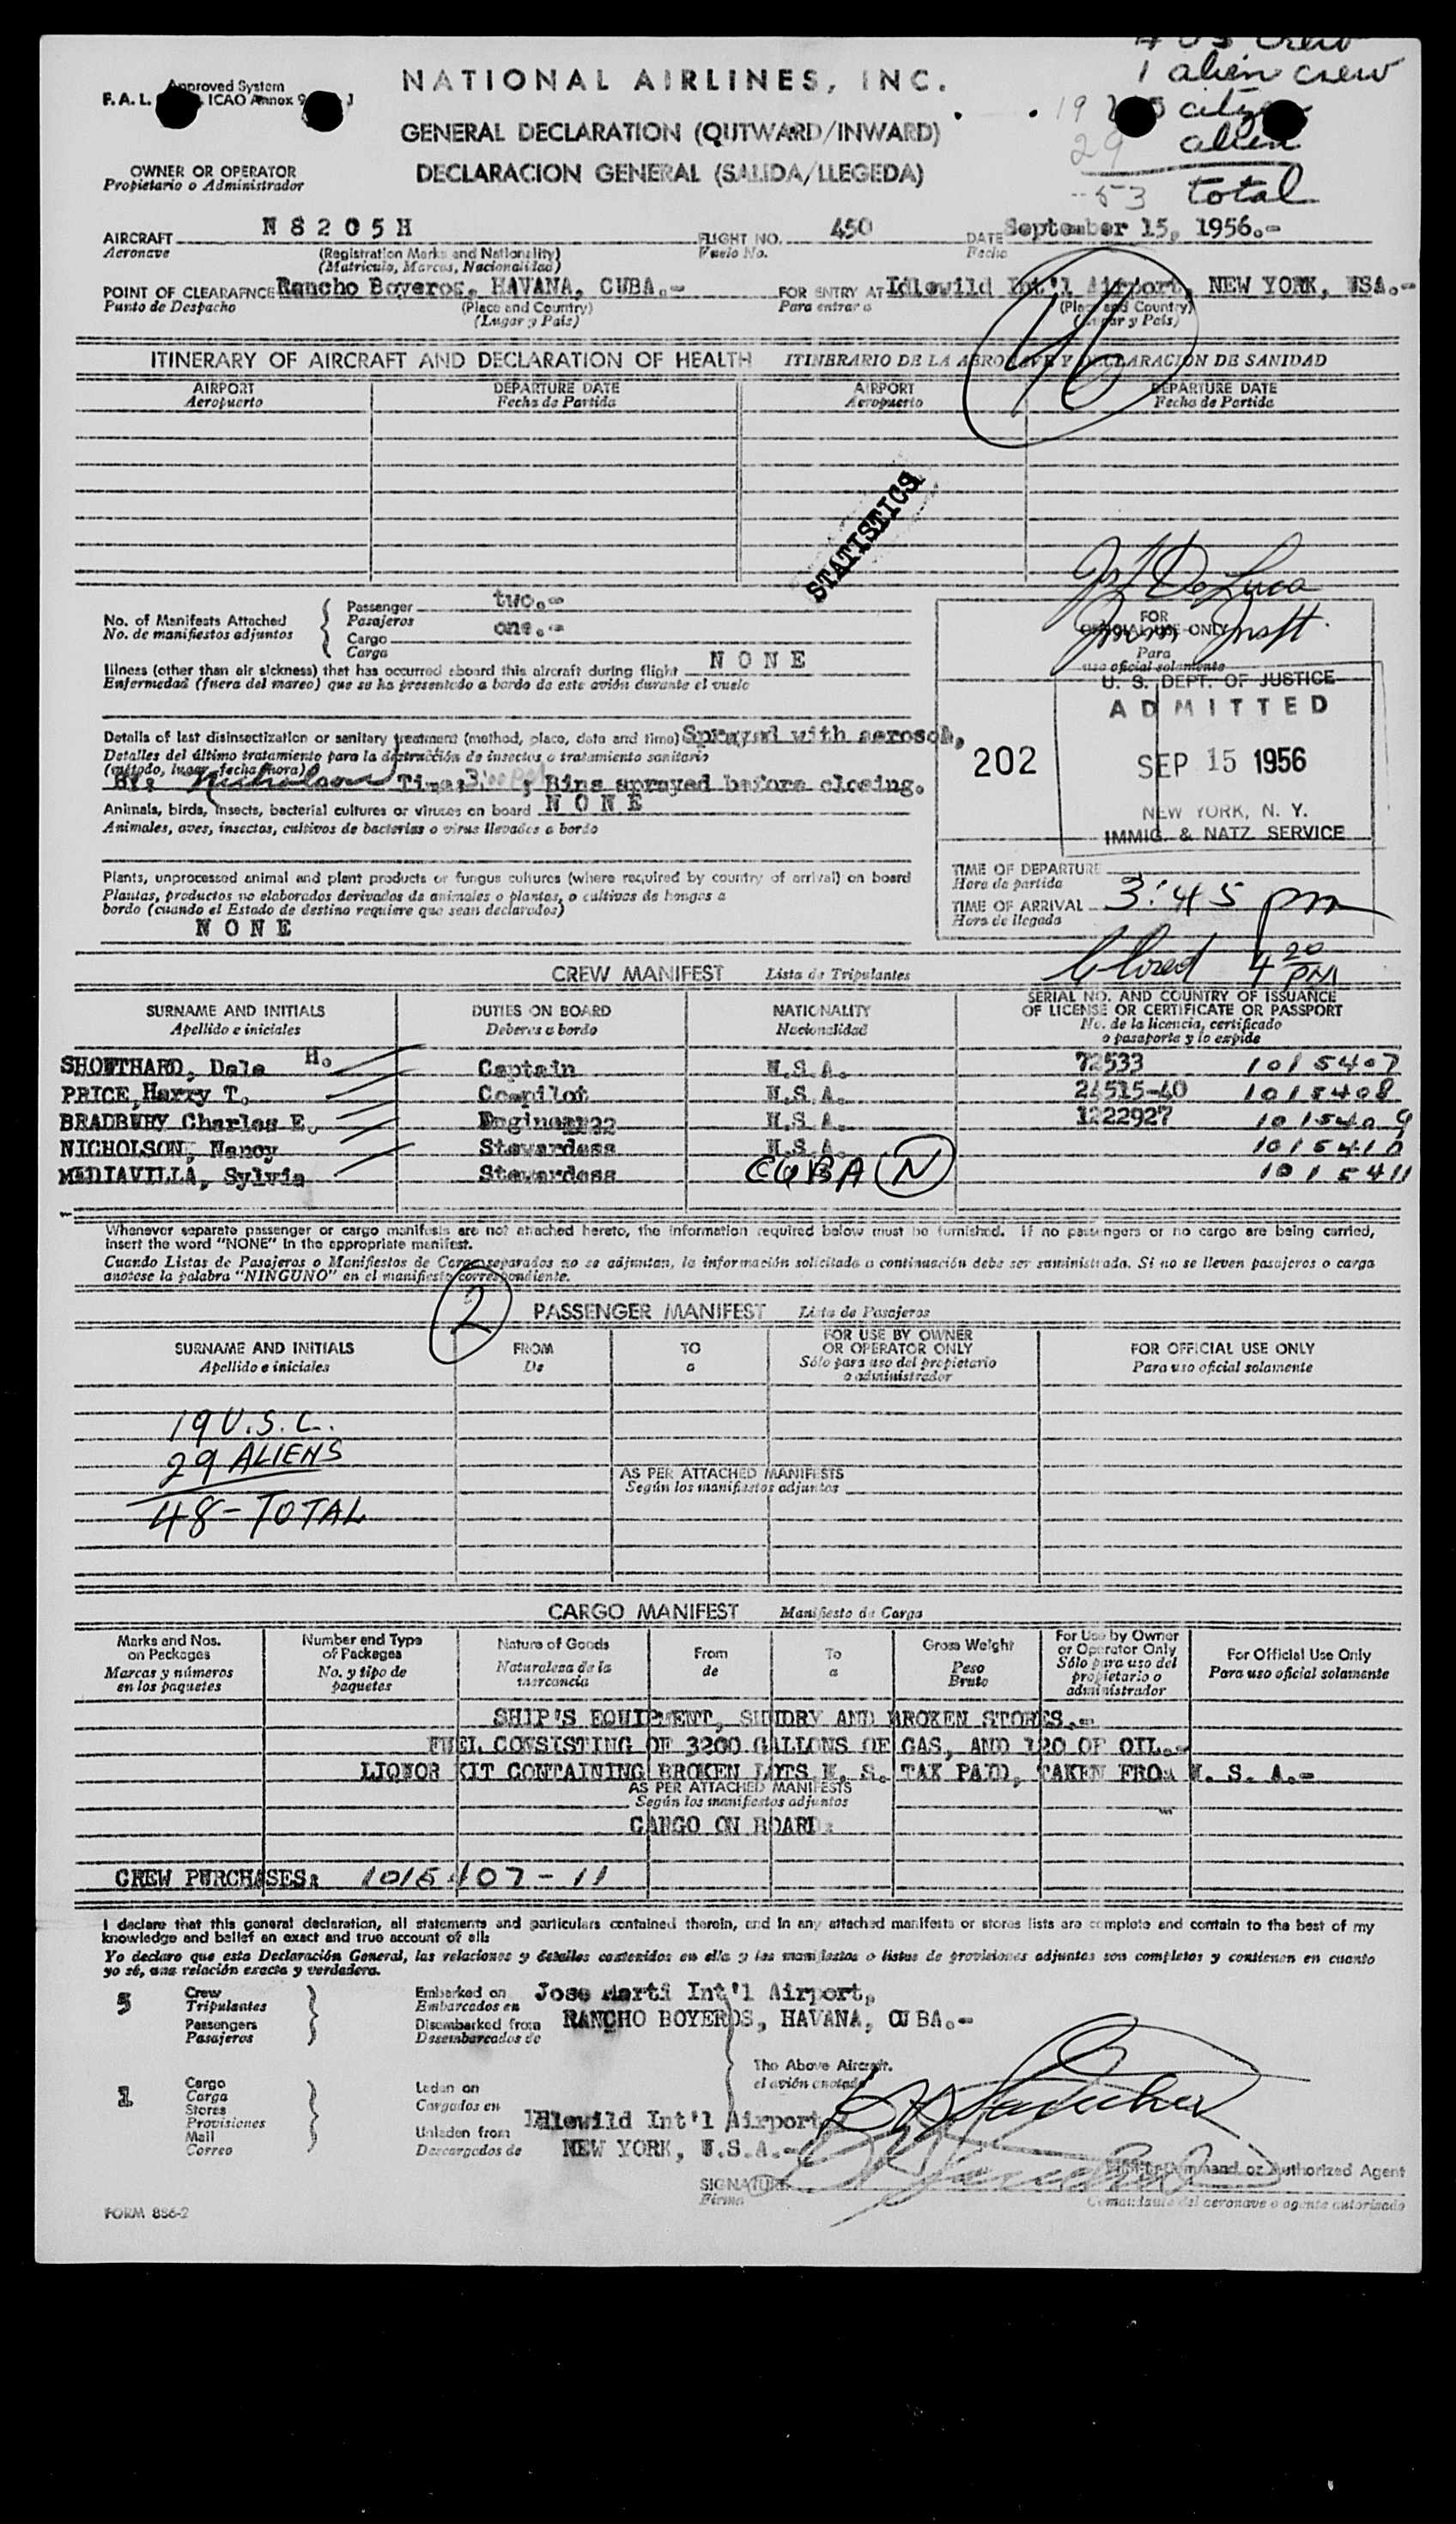 4 US crew
1 alien crew
19 US citizen
29 alien
53 total
Approved System
F. A. L. ICAO Annex 9 J
NATIONAL AIRLINES, INC.
GENERAL DECLARATION (OUTWARD/INWARD)
DECLARACION GENERAL (SALIDA/LLEGEDA)
OWNER OR OPERATOR
Propietario o Administrador
AIRCRAFT N 8 2 0 5 H FLIGHT NO. 450 DATE September 15, 1956.-
Aeronave (Registration Marks and Nationality) Vuelo No. Fecha
(Matricula, Marcas, Nacionalidad)
POINT OF CLEARAFNCE Rancho Boyeros, HAVANA, CUBA.- FOR ENTRY AT Idlewild Int'l Airport, NEW YORK, USA.-
Punto de Despacho (Place and Country) Para entrar a (Place and Country)
(Lugar y Pais) (Lugar y Pais)
16
ITINERARY OF AIRCRAFT AND DECLARATION OF HEALTH ITINERARIO DE LA AERONAVE Y DECLARACION DE SANIDAD
AIRPORT DEPARTURE DATE AIRPORT DEPARTURE DATE
Aeropuerto Fecha de Partida Aeropuerto Fecha de Partida
STATISTICS
De Luca
No. of Manifests Attached Passenger two.-
No. de manifiestos adjuntos Pasajeros
Cargo one.-
Carga
FOR
OFFICIAL USE ONLY
Para
uso oficial solamente
Illness (other than air sickness) that has occurred aboard this aircraft during flight N O N E
Enfermedad (fuera del mareo) que se ha presentado a bordo de este avión durante el vuelo
U. S. DEPT. OF JUSTICE
ADMITTED
202 SEP 15 1956
NEW YORK, N. Y.
IMMIG. & NATZ SERVICE
Details of last disinsectization or sanitary treatment (method, place, date and time) Sprayed with aerosol,
Detalles del último tratamiento para la destrucción de insectos o tratamiento sanitario
(método, lugar, fecha, hora)
By: Nicholson Time: 3:00 pm ; Bins sprayed before closing.
Animals, birds, insects, bacterial cultures or viruses on board N O N E
Animales, aves, insectos, cultivos de bacterias o virus llevados a bordo
Plants, unprocessed animal and plant products or fungus cultures (where required by country of arrival) on board
Plantas, productos no elaborados derivados de animales o plantas, o cultivos de hongos a
bordo (cuando el Estado de destino requiere que sean declarados)
N O N E
TIME OF DEPARTURE
Hora de partida
TIME OF ARRIVAL 3:45 pm
Hora de llegada
Closed 4 20 PM
CREW MANIFEST Lista de Tripulantes
SURNAME AND INITIALS DUTIES ON BOARD NATIONALITY SERIAL NO. AND COUNTRY OF ISSUANCE
OF LICENSE OR CERTIFICATE OR PASSPORT
Apellido e iniciales Deberes a bordo Nacionalidad No. de la licencia, certificado
o pasaporte y lo expide
SHOWTHARD, Dale H. Captain U.S.A. 72533 1015407
PRICE, Harry T. Copilot U.S.A. 24515-40 1015408
BRADBURY Charles E. Engineer U.S.A. 1222927 1015409
NICHOLSON, Nancy Stewardess U.S.A. 1015410
MEDIAVILLA, Sylvia Stewardess CUBA N 1015411
Whenever separate passenger or cargo manifests are not attached hereto, the information required below must be furnished. If no passengers or no cargo are being carried,
insert the word "NONE" in the appropriate manifest.
Cuando Listas de Pasajeros o Manifiestos de Carga separados no se adjuntan, la información solicitada a continuación debe ser suministrada. Si no se lleven pasajeros o carga
anotese la palabra "NINGUNO" en el manifiesto correspondiente.
2 PASSENGER MANIFEST Lista de Pasajeros
SURNAME AND INITIALS FROM TO FOR USE BY OWNER
OR OPERATOR ONLY FOR OFFICIAL USE ONLY
Apellido e iniciales De a Sólo para uso del propietario
o administrador Para uso oficial solamente
19 U.S.C.
29 ALIENS
48 - TOTAL
AS PER ATTACHED MANIFESTS
Según los manifiestos adjuntos
CARGO MANIFEST Manifiesto de Carga
Marks and Nos.
on Packages
Marcas y números
en los paquetes
Number and Type
of Packages
No. y tipo de
paquetes
Nature of Goods
Naturaleza de la
mercancia
From
de
To
a
Gross Weight
Peso
Bruto
For Use by Owner
or Operator Only
Sólo para uso del
propietario o
administrador
For Official Use Only
Para uso oficial solamente
SHIP'S EQUIPMENT, SUNDRY AND BROKEN STORES.-
FUEL CONSISTING OF 3200 GALLONS OF GAS, AND 120 OF OIL.-
LIQUOR KIT CONTAINING BROKEN LOTS U. S. TAX PAID, TAKEN FROM U. S. A.-
AS PER ATTACHED MANIFESTS
Según los manifiestos adjuntos
CARGO ON BOARD:
CREW PURCHASES: 1015407-11
I declare that this general declaration, all statements and particulars contained therein, and in any attached manifests or stores lists are complete and contain to the best of my
knowledge and belief an exact and true account of all:
Yo declaro que esta Declaración General, las relaciones y detalles contenidos en ella y los manifiestos o listas de provisiones adjuntos son completos y contienen en cuanto
yo sé, una relación exacta y verdadera.
5 Crew
Tripulantes
Passengers
Pasajeros
Embarked on
Embarcados en
Disembarked from
Desembarcados de
Jose Marti Int'l Airport,
RANCHO BOYEROS, HAVANA, CUBA.-
The Above Aircraft.
el avión anotado
1 Cargo
Carga
Stores
Provisiones
Mail
Correo
Laden on
Cargados en
Unladen from
Descargados de
Idlewild Int'l Airport
NEW YORK, U.S.A.-
SIGNATURE
Firma
Command or Authorized Agent
Comandante del aeronave o agente autorizado
FORM 886-2